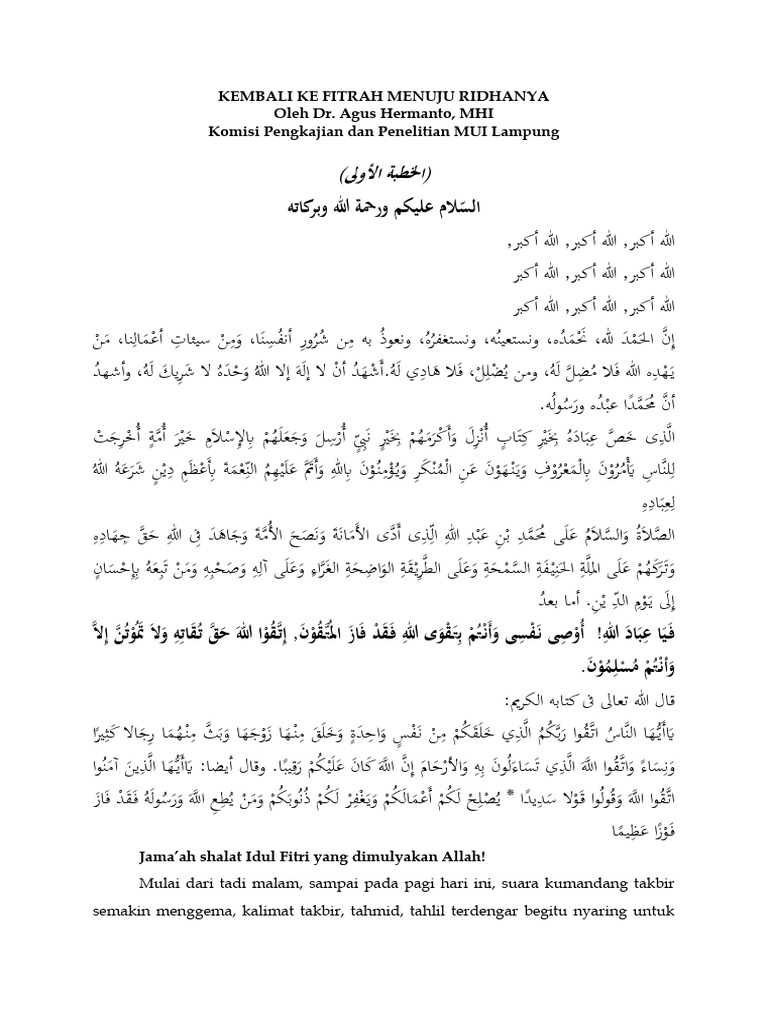 KEMBALI KE FITRAH MENUJU RIDHANYA
Oleh Dr. Agus Hermanto, MHI
Komisi Pengkajian dan Penelitian MUI Lampung
(الخطبة الأولى)
السّلام عليكم ورحمة الله وبركاته
الله أكبر, الله أكبر, الله أكبر,
الله أكبر, الله أكبر, الله أكبر
الله أكبر, الله أكبر, الله أكبر
إِنَّ الحَمْدَ لله، نَحْمَدُه، ونستعينُه، ونستغفرُهُ، ونعوذُ به مِن شُرُورِ أنفُسِنَا، وَمِنْ سيئاتِ أعْمَالِنا، مَنْ
يَهْدِه الله فَلا مُضِلَّ لَهُ، ومن يُضْلِلْ، فَلا هَادِي لَهُ.أَشْهَدُ أنْ لا إلَهَ إلا اللهُ وَحْدَهُ لا شَرِيكَ لَهُ، وأشهدُ
أنَّ مُحَمَّدًا عبْدُه ورَسُولُه.
الَّذِى خَصَّ عِبَادَهُ بِخَيْرِ كِتَابٍ أُنْزِلَ وَأَكْرَمَهُمْ بِخَيْرِ نَبِيٍّ أُرْسِلَ وَجَعَلَهُمْ بِالإِسْلاَمِ خَيْرَ أُمَّةٍ أُخْرِجَتْ
لِلنَّاسِ يَأْمُرُوْنَ بِالْمَعْرُوْفِ وَيَنْهَوْنَ عَنِ الْمُنْكَرِ وَيُؤْمِنُوْنَ بِاللهِ وَأَتَمَّ عَلَيْهِمُ النِّعْمَةَ بِأَعْظَمِ دِيْنٍ شَرَعَهُ اللهُ
لِعِبَادِهِ
الصَّلاَةُ وَالسَّلاَمُ عَلَى مُحَمَّدِ بْنِ عَبْدِ اللهِ الَّذِى أَدَّى الأَمَانَةَ وَنَصَحَ الأُمَّةَ وَجَاهَدَ فِى اللهِ حَقَّ جِهَادِهِ
وَتَرَكَهُمْ عَلَى المِلَّةِ الحَنِيْفَةِ السَّمْحَةِ وَعَلَى الطَّرِيْقَةِ الوَاضِحَةِ الغَرَّاءِ وَعَلَى آلِهِ وَصَحْبِهِ وَمَنْ تَبِعَهُ بِإِحْسَانٍ
إِلَى يَوْمِ الدِّ يْنِ. أما بعدُ
فَيَا عِبَادَ اللهِ! أُوْصِى نَفْسِى وَأَنْتُمْ بِتَقْوَى اللهِ فَقَدْ فَازَ المُتَّقُوْنَ, إِتَّقُوْا اللهَ حَقَّ تُقَاتِهِ وَلاَ تَمُوْتُنَّ إِلاَّ
وَأنْتُمْ مُسْلِمُوْنَ.
قال الله تعالى فى كتابه الكريم:
يَاأَيُّهَا النَّاسُ اتَّقُوا رَبَّكُمُ الَّذِي خَلَقَكُمْ مِنْ نَفْسٍ وَاحِدَةٍ وَخَلَقَ مِنْهَا زَوْجَهَا وَبَثَّ مِنْهُمَا رِجَالا كَثِيرًا
وَنِسَاءً وَاتَّقُوا اللَّهَ الَّذِي تَسَاءَلُونَ بِهِ وَالأرْحَامَ إِنَّ اللَّهَ كَانَ عَلَيْكُمْ رَقِيبًا. وقال أيضا: يَاأَيُّهَا الَّذِينَ آمَنُوا
اتَّقُوا اللَّهَ وَقُولُوا قَوْلا سَدِيدًا * يُصْلِحْ لَكُمْ أَعْمَالَكُمْ وَيَغْفِرْ لَكُمْ ذُنُوبَكُمْ وَمَنْ يُطِعِ اللَّهَ وَرَسُولَهُ فَقَدْ فَازَ
فَوْزًا عَظِيمًا
Jama’ah shalat Idul Fitri yang dimulyakan Allah!
Mulai dari tadi malam, sampai pada pagi hari ini, suara kumandang takbir
semakin menggema, kalimat takbir, tahmid, tahlil terdengar begitu nyaring untuk